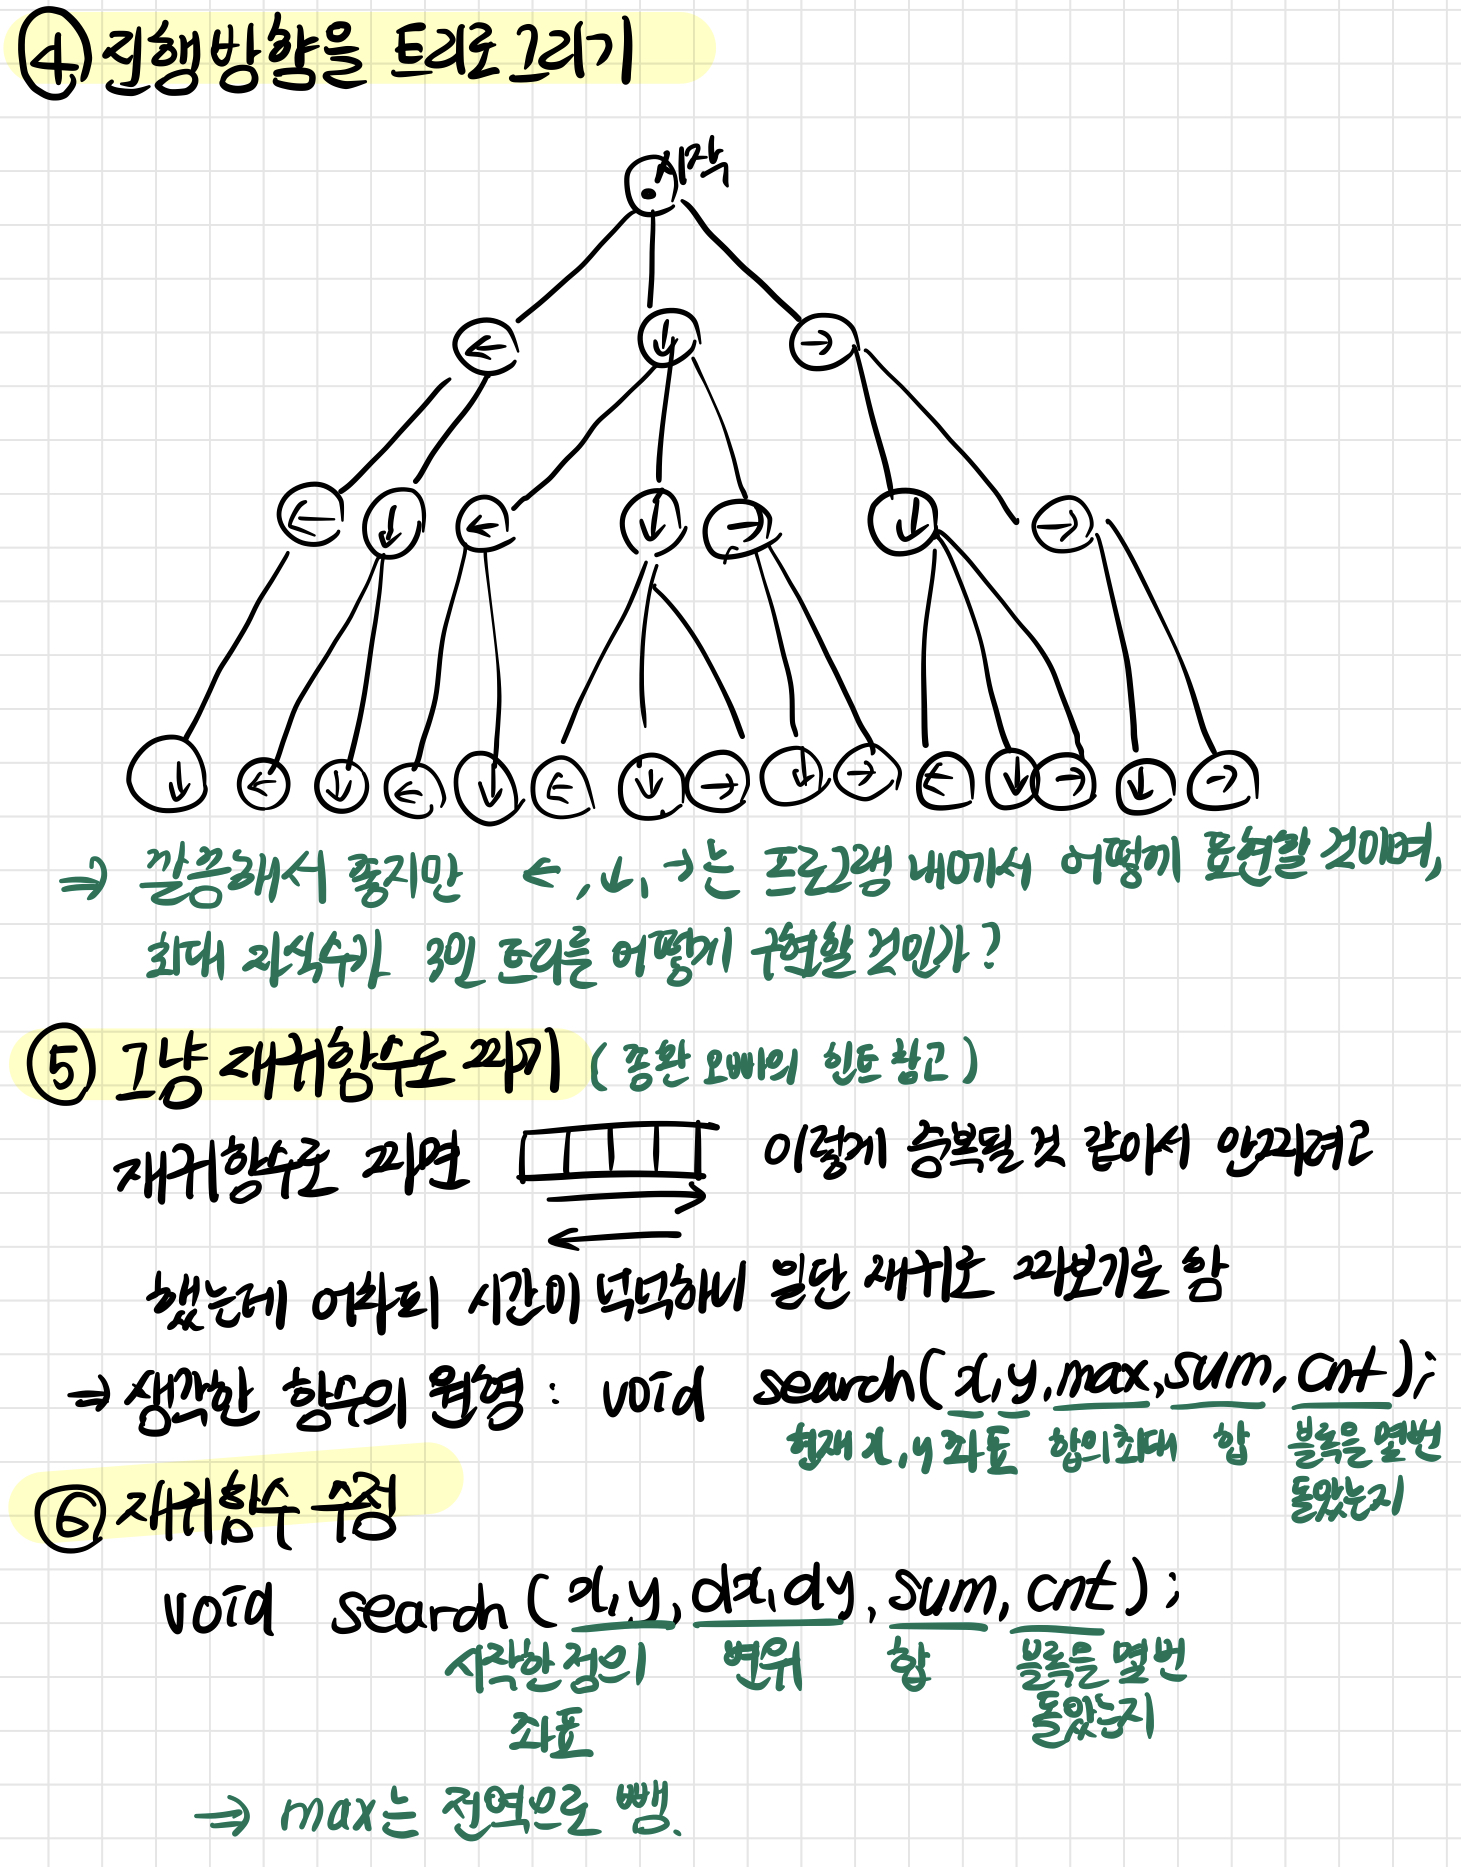 ④ 진행방향을 트리로 그리기
시작
← ↓ →
← ↓ ← ↓ → ↓ →
↓ ← ↓ ← ↓ ← ↓ → ↓ → ← ↓ → ↓ →
⇒ 깔끔해서 좋지만 ←, ↓, →는 프로그램 내에서 어떻게 표현할 것이며,
최대 자식수가 3인 트리를 어떻게 구현할 것인가?
⑤ 그냥 재귀함수로 짜기 (종환 오빠의 힌트 참고)
재귀함수로 짜면 이렇게 중복될 것 같아서 안짜려고
했는데 어차피 시간이 넉넉하니 일단 재귀로 짜보기로 함
⇒ 생각한 함수의 원형 : void search(x,y,max,sum,cnt);
현재 x,y 좌표 합의최대 합 블록을 몇번
돌았는지
⑥ 재귀함수 수정
void search(x,y,dx,dy,sum,cnt);
시작한 점의 변위 합 블록을 몇번
좌표 돌았는지
⇒ max는 전역으로 뺌.